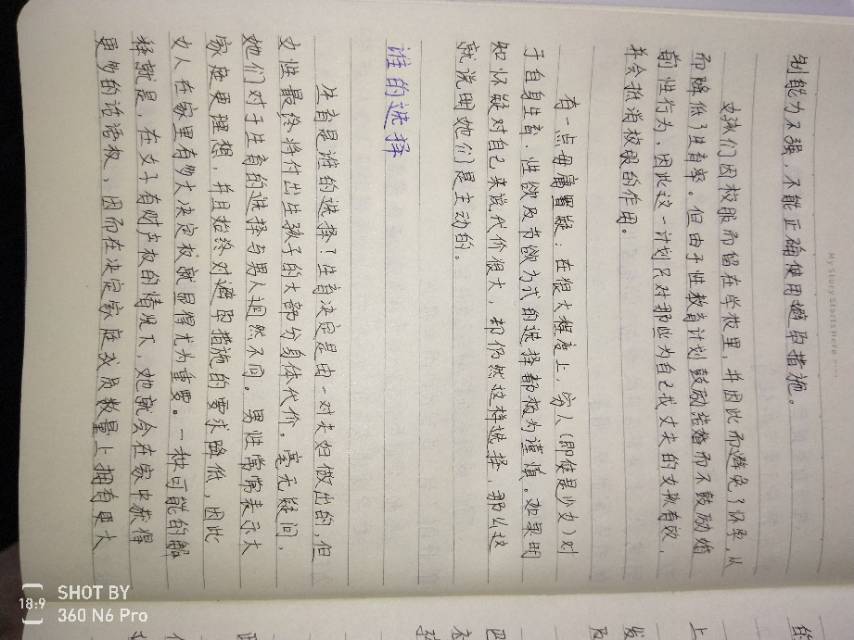 My Story Starts Here
制能力不强，不能正确使用避孕措施。
女孩们因校服而留在学校里，并因此而避免了怀孕，从
而降低了生育率。但由于性教育计划鼓励结婚而不鼓励婚
前性行为，因此这一计划只对那些为自己找丈夫的女孩有效，
并会抵消校服的作用。
有一点毋庸置疑：在很大程度上，穷人（即使是少女）对
于自身生育、性欲及节欲方式的选择都极为谨慎。如果明
知怀疑对自己来说代价很大，却仍然这样选择，那么这
就说明她们是主动的。
谁的选择
生育是谁的选择？生育决定是由一对夫妇做出的，但
女性最终将付出生孩子的大部分身体代价。毫无疑问，
她们对于生育的选择与男人迥然不同。男性常常表示大
家庭更理想，并且始终对避孕措施的要求降低，因此
女人在家里有多大决定权就显得尤为重要。一种可能的解
释就是，在女子有财产权的情况下，她就会在家中获得
更多的话语权，因而在决定家庭成员数量上拥有更大
SHOT BY
18:9
360 N6 Pro